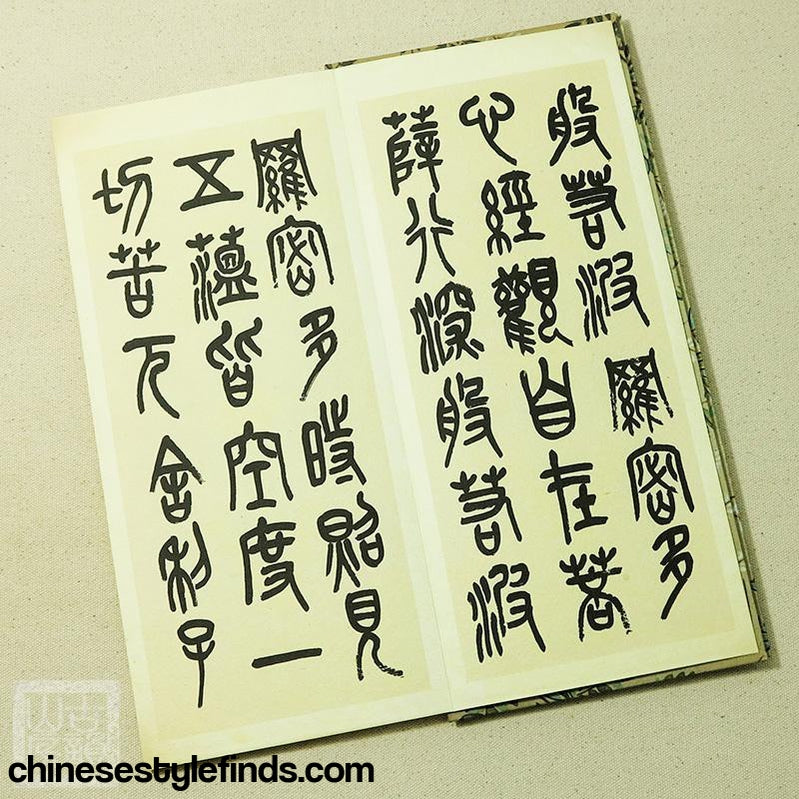 般若波羅密多
心經觀自在菩
薩行深般若波
羅密多時照見
五蘊皆空度一
切苦厄舍利子
chinesestylefinds.com